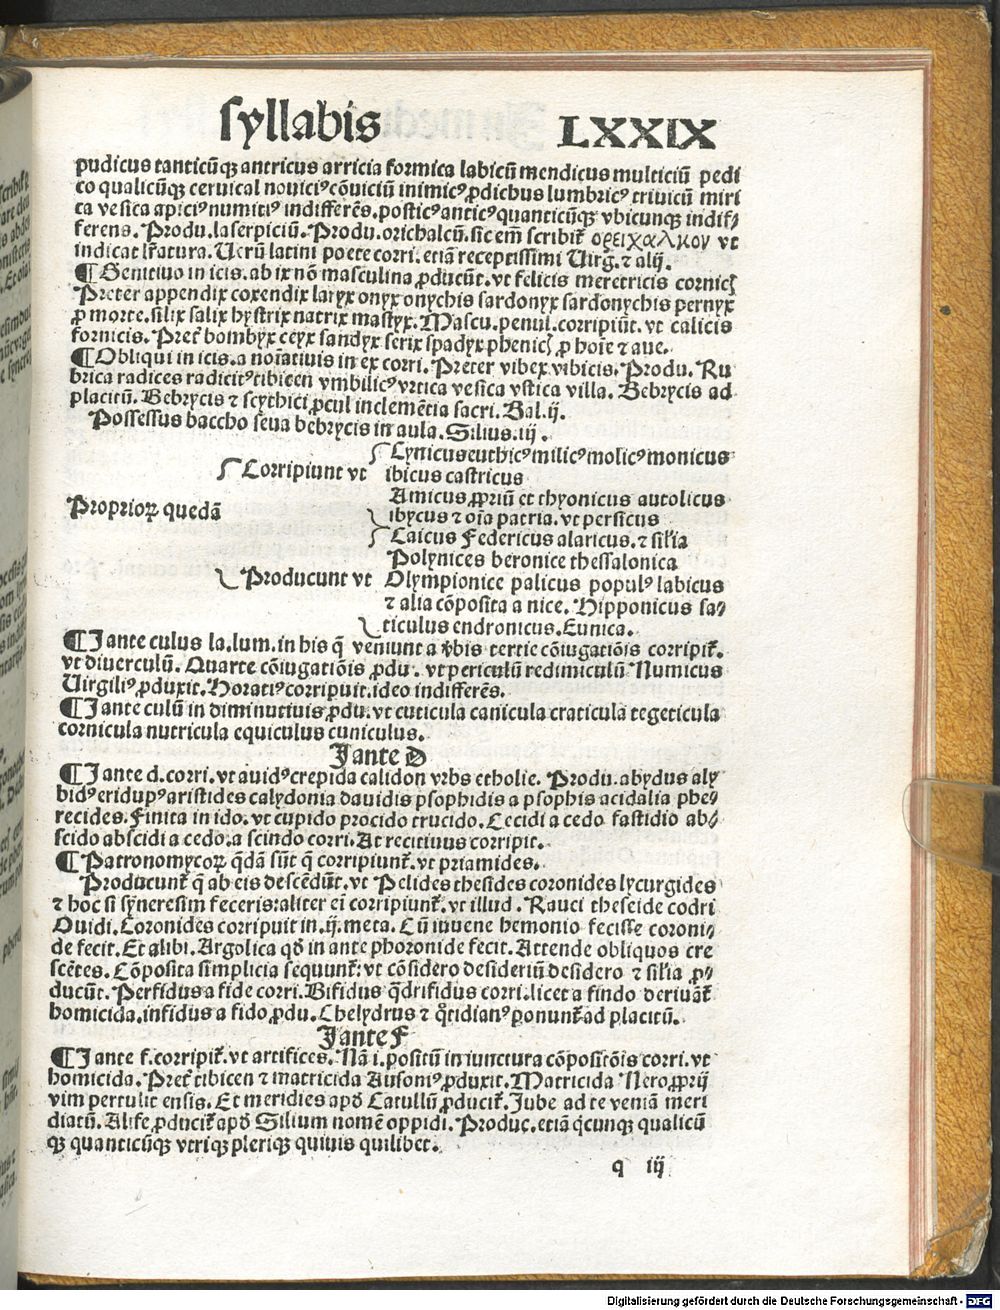 syllabis LXXIX
pudicus tanticūqꝫ antricus arricia formica labicū mendicus multiciū pedi
co qualicūqꝫ cervical noviciꝰ cōviciū inimicꝰ ꝓdicbus lumbricꝰ triviciū miri
ca vesica apiciꝰ numitiꝰ indifferēs. posticꝰ anticꝰ quanticūqꝫ vbicunqꝫ indif⸗
ferens. Produ. laserpiciū. Produ. orichalcū. sic em̄ scribit᷑ ορειχαλκον vt
indicat lr̄atura. Uerū latini poete corri. etiā receptissimi Uirg. ⁊ alij.
¶ Genitivo in icis. ab ix nō masculina ꝓducūt. vt felicis meretricis cornicꝭ
Preter appendix coxendix laryx onyx onychis sardonyx sardonychis pernyx
ꝓ morte. silix salix hystrix natrix mastyx. Mascu. penul. corripiūt. vt calicis
fornicis. Pret᷑ bombyx ceyx sandyx serix spadyx phenicꝭ ꝓ hoīe ⁊ ave.
¶ Obliqui in icis. a noīativis in ex corri. Preter vibex vibicis. Produ. Ru
brica radices radicitꝰ tibicen vmbilicꝰ vrtica vesica vstica villa. Bebrycis ad
placitū. Bebrycis ⁊ scythici ꝓcul inclemētia sacri. Val. ij.
Possessus baccho seva bebrycis in aula. Silius. iij.
Lynicus euthicꝰ milicꝰ molicꝰ monicus
Corripiunt vt ibicus castricus
Amicus ꝓpriū et thyonicus autolicus
Propriorꝝ quedā ibycus ⁊ oīa patria. vt persicus
Caicus Federicus alaricus. ⁊ sil̄ia
Polynices beronice thessalonica
Producunt vt Olympionice palicus populꝰ labicus
⁊ alia cōposita a nice. Hipponicus sa⸗
ticulus endronicus. Eunica.
¶ I ante culus la. lum. in his q̄ veniunt a v̄bis tertie cōiugatiōis corripit᷑.
vt diverculū. Quarte cōiugatiōis ꝓdu. vt periculū redimiculū Numicus
Uirgiliꝰ ꝓduxit. Horatiꝰ corripuit. ideo indifferēs.
¶ I ante culū in diminutivis ꝓdu. vt cuticula canicula craticula tegeticula
cornicula nutricula equiculus cuniculus.
I ante D
¶ I ante d. corri. vt avidꝰ crepida calidon vrbs etholie. Produ. abydus aly
bidꝰ eridupꝰ aristides calydonia davidis psophidis a psophis acidalia phe⸗
recides. Finita in ido. vt cupido procido trucido. Cecidi a cedo fastidio ab⸗
scido abscidi a cedo. a scindo corri. At recitivus corripit.
¶ Patronomycorꝝ q̄dā sūt q̄ corripiunt᷑. vt priamides.
Producunt᷑ q̄ ab eis descēdūt. vt Pelides thesides coronides lycurgides
⁊ hoc si syneresim feceris: aliter ei corripiunt᷑. vt illud. Rauci theseide codri
Ouidi. Coronides corripuit in. ij. meta. Cū iuvene hemonio fecisse coroni⸗
de fecit. Et alibi. Argolica qđ in ante phoronide fecit. Attende obliquos cre
scētes. Cōposita simplicia sequunt᷑: vt cōsidero desideriū desidero ⁊ sil̄ia ꝓ⸗
ducūt. Perfidus a fide corri. Bifidus q̄drifidus corri. licet a findo derivāt᷑
homicida. infidus a fido ꝓdu. Chelydrus ⁊ q̄tidianꝰ ponunt᷑ ad placitū.
I ante F
¶ I ante f. corripit᷑. vt artifices. Nā i. positū in iunctura cōpositōis corri. vt
homicida. Pret᷑ tibicen ⁊ matricida Ausoniꝰ ꝓduxit. Matricida Nero ꝓprij
vim pertulit ensis. Et meridies apđ Catullū ꝓducit᷑. Jube ad te veniā meri
diatū. Alife ꝓducit᷑ apđ Silium nomē oppidi. Produc. etiā q̄cunqꝫ qualicū
qꝫ quanticūqꝫ vtriqꝫ pleriqꝫ quivis quilibet.
q iij
Digitalisierung gefördert durch die Deutsche Forschungsgemeinschaft - DFG